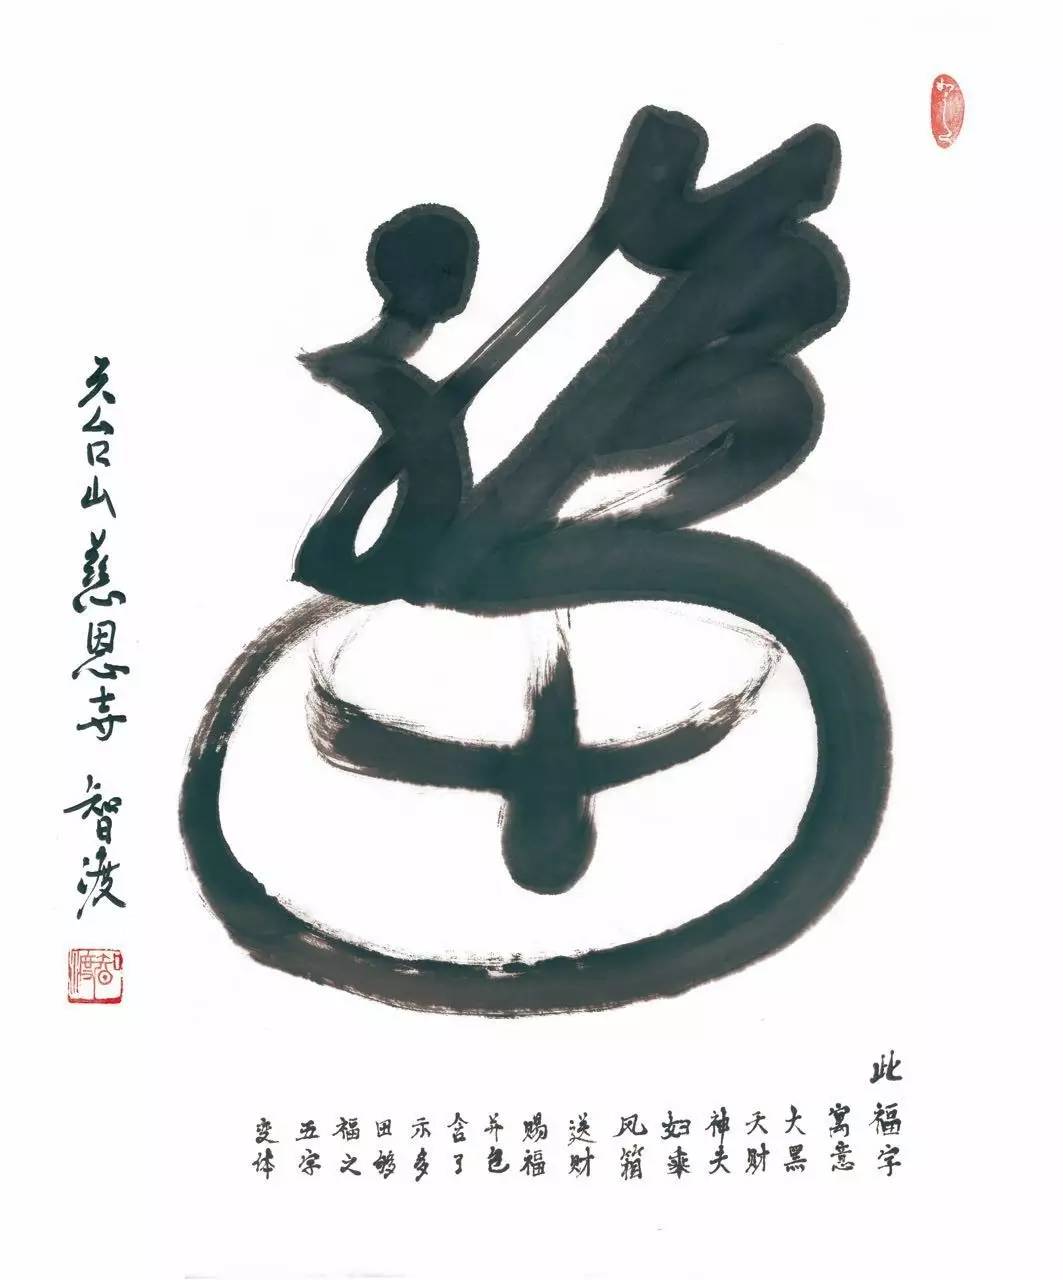 福
此福字
寓意
大黑
天财
神夫
妇乘
凤箱
送财
赐福
并包
含了
示多
田够
福之
五字
变体
天台山慈恩寺 智渡
智渡